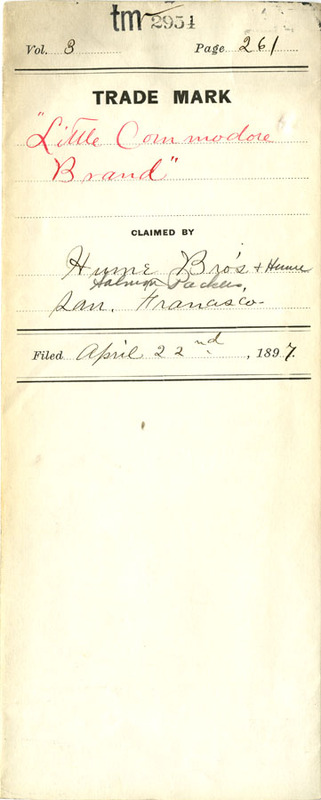 tm 2954
Vol. 3 Page 261
TRADE MARK
"Little Commodore
Brand"
CLAIMED BY
Hume Bro's + Hume
Salmon Packers,
San. Francisco.
Filed April 22nd, 1897.